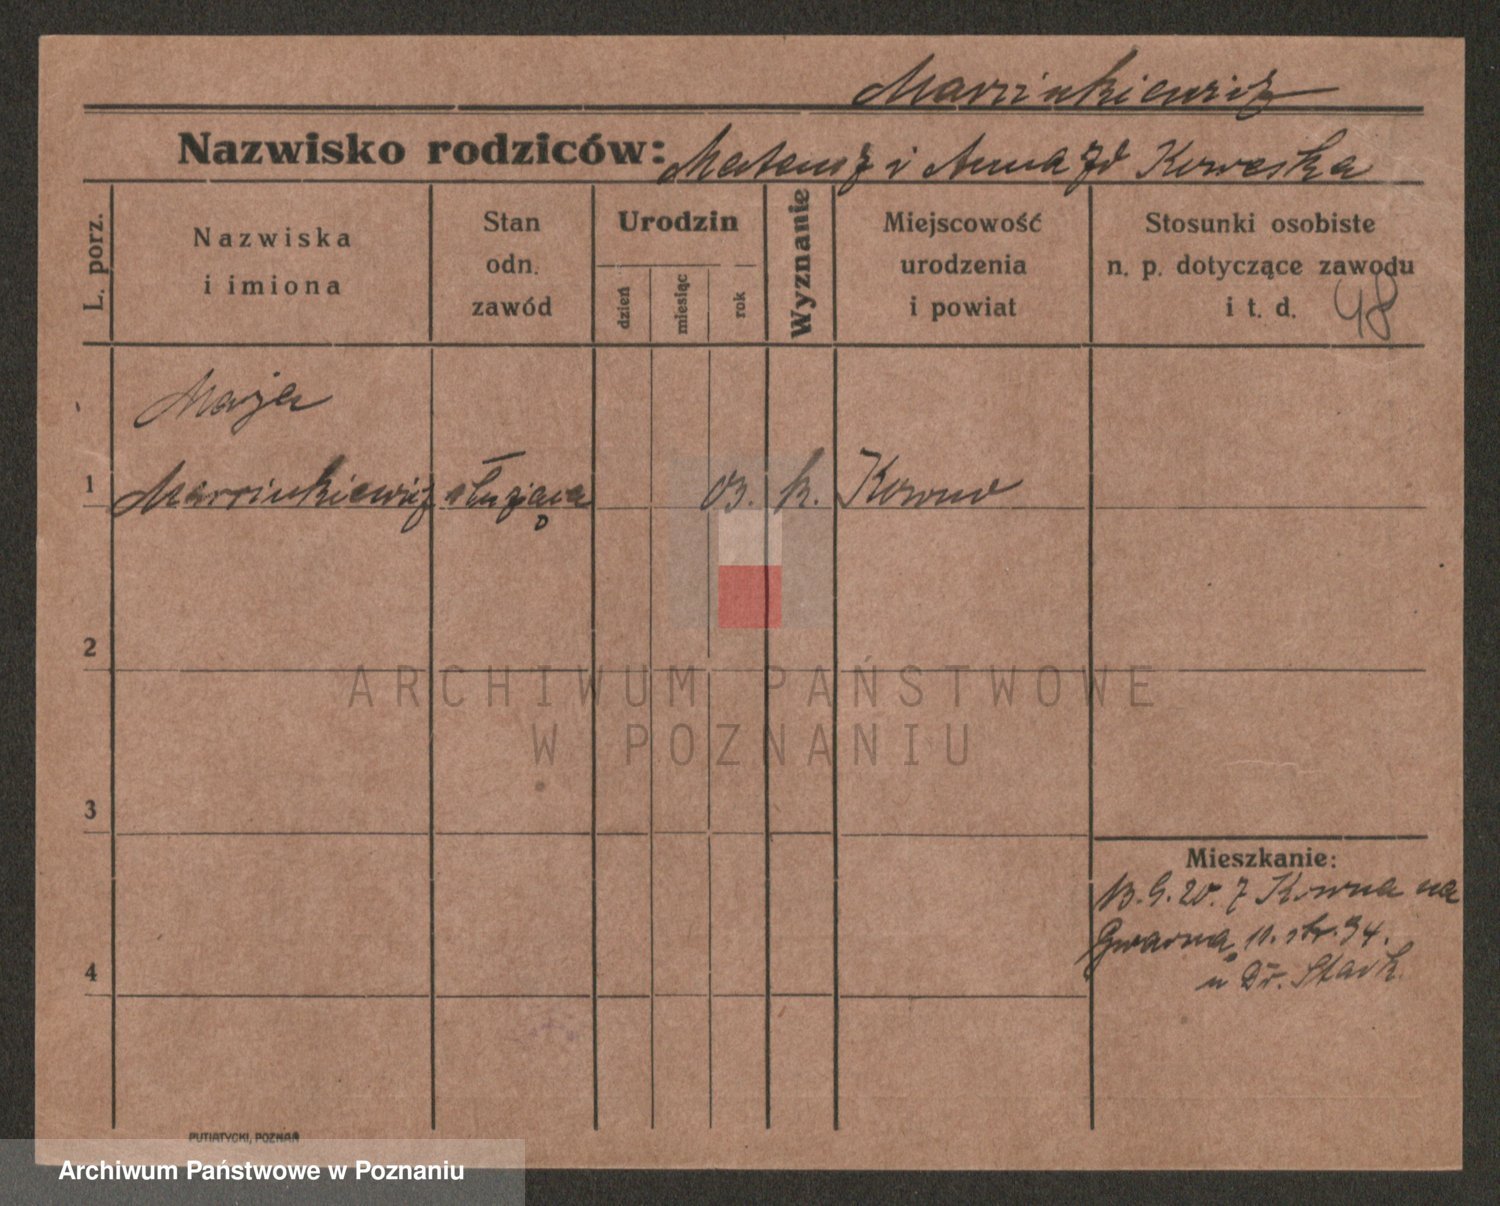 Marcinkiewicz
Nazwisko rodziców: Mateusz i Anna zd Koweska
L. porz.
Nazwiska
i imiona
Stan
odn.
zawód
Urodzin
dzień
miesiąc
rok
Wyznanie
Miejscowość
urodzenia
i powiat
Stosunki osobiste
n. p. dotyczące zawodu
i t. d.
48
Marja
1 Marcinkiewicz służąca 03. k. Kowno
2
3
4
ARCHIWUM PAŃSTWOWE
W POZNANIU
Mieszkanie:
13.9.20. z Kowna na
Gwarna 11. str. 34.
u Dr. Stark.
PUTIATYCKI, POZNAŃ
Archiwum Państwowe w Poznaniu